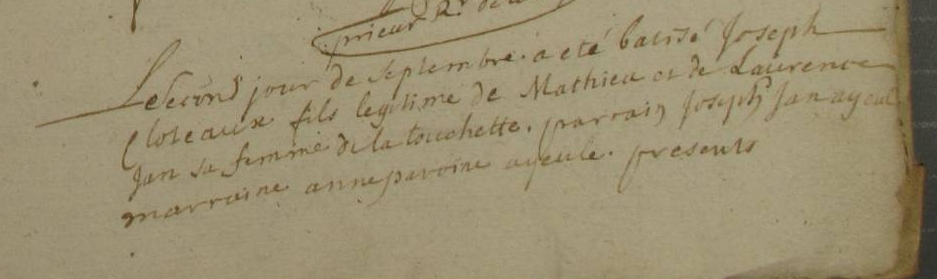 prieur R. de
Le second jour de septembre a eté batisé Joseph
Cloteaux fils legitime de Mathieu et de Laurence
Jan sa femme de la touchette. parrain Joseph Jan ayeul
marraine anne paroine ayeule. presents